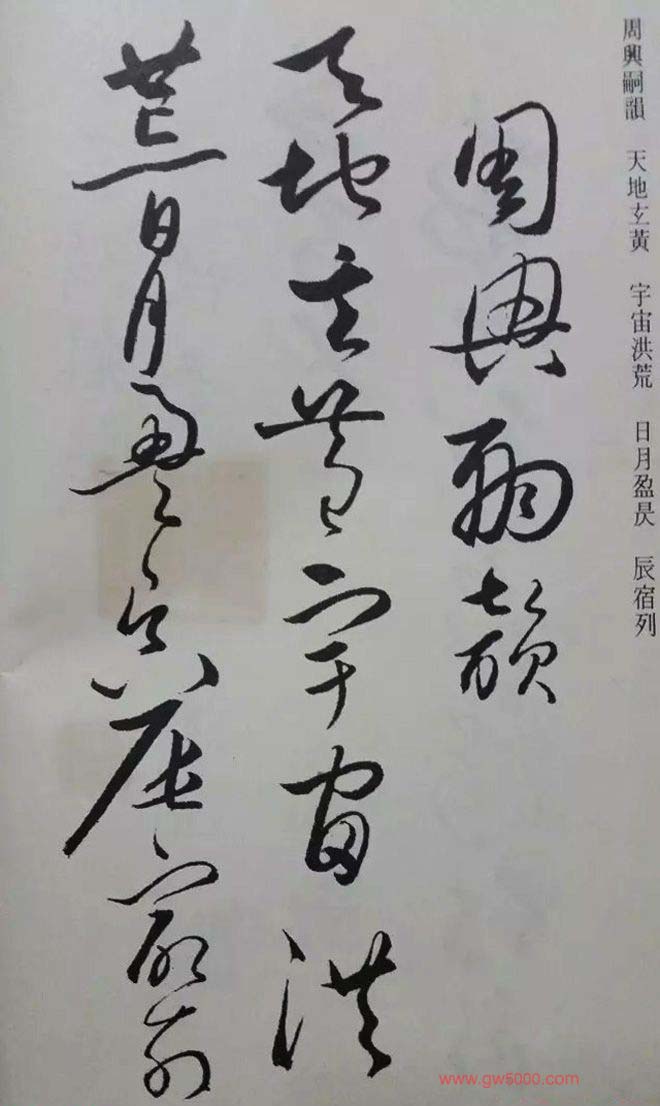 周興嗣韻　天地玄黃　宇宙洪荒　日月盈昃　辰宿列
周興嗣韻
天地玄黃宇宙洪
荒日月盈昃辰宿列
www.gw5000.com